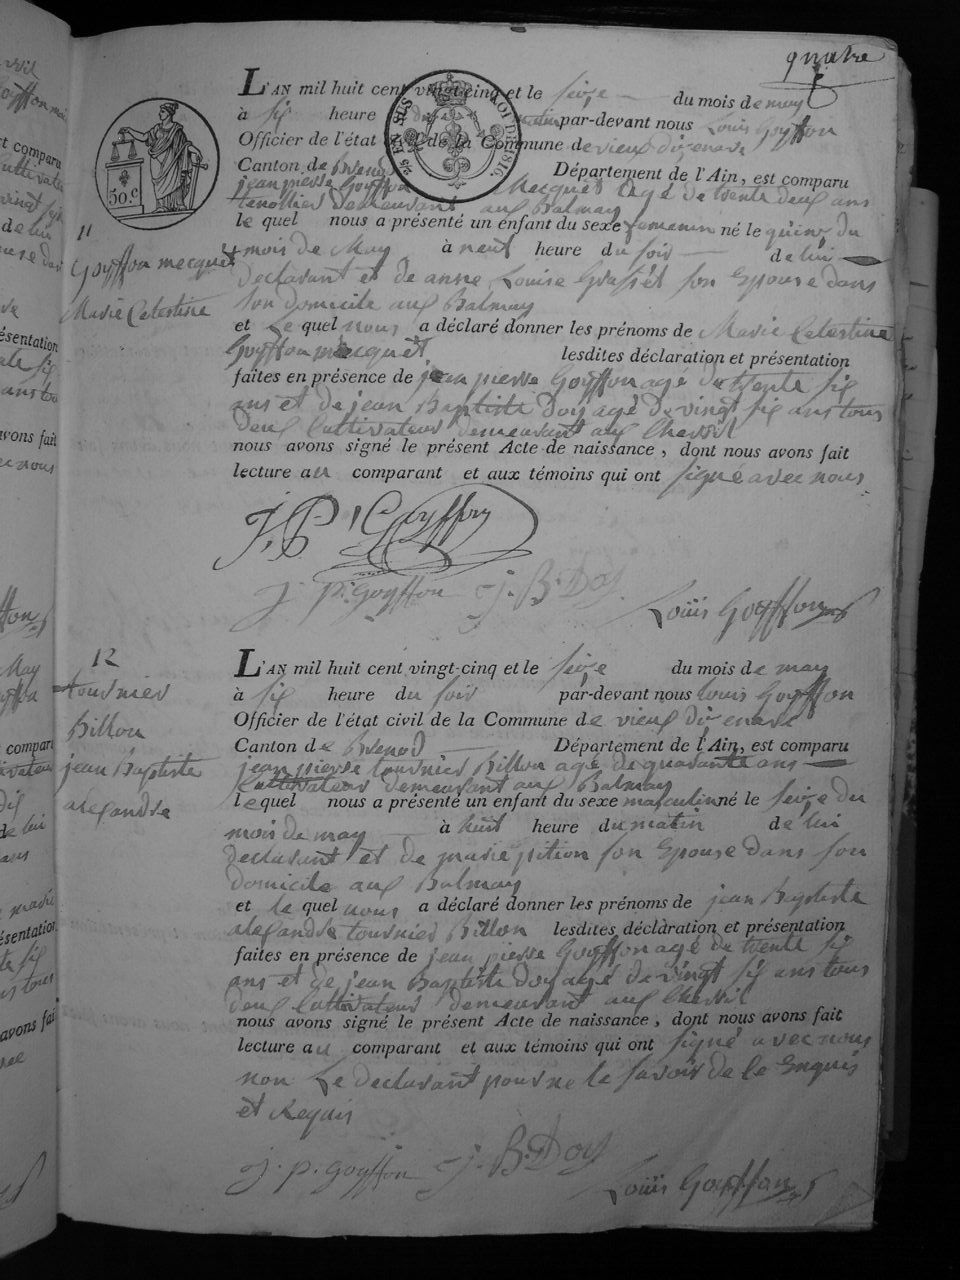 quatre
L'AN mil huit cent vingt-cinq et le seize du mois de may
à six heure du matin par-devant nous Louis Goyffon
Officier de l'état civil de la Commune de vieux d'izenave
Canton de Brenod Département de l'Ain, est comparu
jean pierre Goyffon Mecquet agé de trente deux ans
demeurant aux Balmay
le quel nous a présenté un enfant du sexe femenin né le quinze du
mois de May à neuf heure du soir de lui
declarant et de anne Louise Grasset son Epouse dans
son domicile aux Balmay
et Le quel nous a déclaré donner les prénoms de Marie Celestine
Goyffon mecquet lesdites déclaration et présentation
faites en présence de jean pierre Goyffon agé de trente six
ans et de jean Baptiste Doy agé de vingt six ans tous
deux Cultivateur demeurant aux Chevril
nous avons signé le présent Acte de naissance, dont nous avons fait
lecture au comparant et aux témoins qui ont signé avec nous
11
Goyffon mecquet
Marie Celestine
50 c.
J. P. Goyffon
j. p. goyffon j. B. Doy
Louis Goyffon
12
tournier
Billon
jean Baptiste
alexandre
L'AN mil huit cent vingt-cinq et le seize du mois de may
à six heure du soir par-devant nous Louis Goyffon
Officier de l'état civil de la Commune de vieux d'izenave
Canton de Brenod Département de l'Ain, est comparu
jean pierre tournier Billon agé de quarante ans
Cultivateur demeurant aux Balmay
le quel nous a présenté un enfant du sexe masculin né le seize du
mois de may à huit heure du matin de lui
declarant et de marie pition son Epouse dans son
domicile aux Balmay
et le quel nous a déclaré donner les prénoms de jean Baptiste
alexandre tournier Billon lesdites déclaration et présentation
faites en présence de jean pierre Goyffon agé de trente six
ans et de jean Baptiste Doy agé de vingt six ans tous
deux Cultivateur demeurant aux Chevril
nous avons signé le présent Acte de naissance, dont nous avons fait
lecture au comparant et aux témoins qui ont signé avec nous
non Le declarant pour ne le savoir de ce Enquis
et Requis
j. p. goyffon j. B. Doy
Louis Goyffon